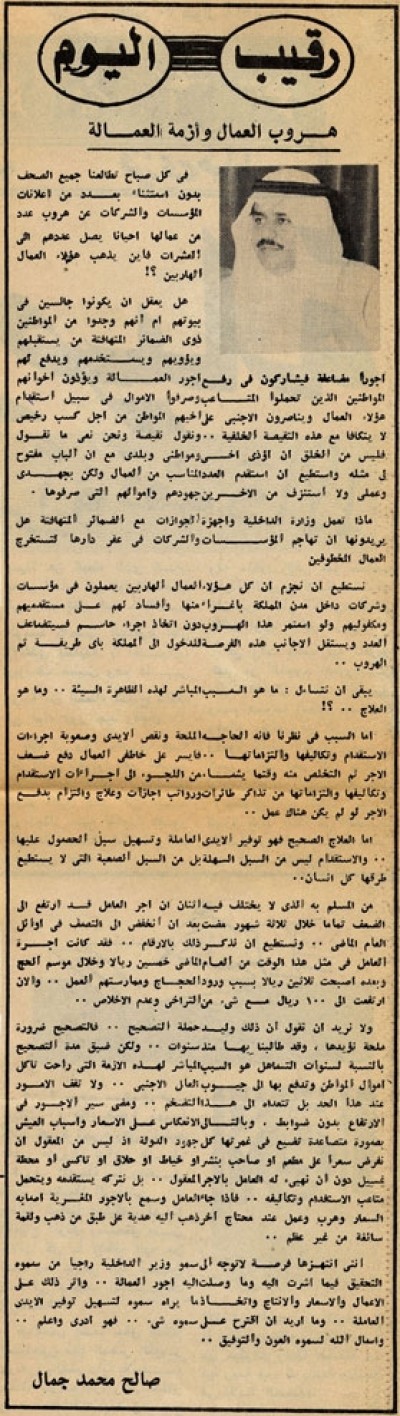 رقيب اليوم
هروب العمال وأزمة العمالة
فى كل صباح تطالعنا جميع الصحف
بدون استثناء بعدد من اعلانات
المؤسسات والشركات عن هروب عدد
من عمالها احيانا يصل عددهم الى
العشرات فأين يذهب هؤلاء العمال
الهاربين ؟!
هل يعقل ان يكونوا جالسين فى
بيوتهم ام أنهم وجدوا من المواطنين
ذوى الضمائر المتهافتة من يستقبلهم
ويؤويهم ويستخدمهم ويدفع لهم
اجورا مضاعفة فيشاركون فى رفع اجور العمالة ويؤذون اخوانهم
المواطنين الذين تحملوا المتاعب وصرفوا الاموال فى سبيل استقدام
هؤلاء العمال ويناصرون الاجنبى على أخيهم المواطن من اجل كسب رخيص
لا يتكافا مع هذه النقيصة الخلقية .. ونقول نقيصة ونحن نعى ما نقول
فليس من الخلق ان اؤذى اخى ومواطنى وبلدى مع ان الباب مفتوح
لى مثله واستطيع ان استقدم العدد المناسب من العمال ولكن بجهدى
وعملى ولا أستنزف من الاخرين جهودهم واموالهم التى صرفوها .
ماذا تعمل وزارة الداخلية واجهزة الجوازات مع الضمائر المتهافتة هل
يريدونها ان تهاجم المؤسسات والشركات فى عقر دارها لتستخرج
العمال المخطوفين
نستطيع ان نجزم ان كل هؤلاء العمال الهاربين يعملون فى مؤسسات
وشركات داخل مدن المملكة باغراء منها وأفساد لهم على مستقدميهم
ومكفوليهم ولو استمر هذا الهروب دون اتخاذ اجراء حاسم فسيتضاعف
العدد ويستغل الاجانب هذه الفرصة للدخول الى المملكة باى طريقة ثم
الهروب ..
يبقى ان نتساءل : ما هو السبب المباشر لهذه الظاهرة السيئة .. وما هو
العلاج .. ؟!
اما السبب فى نظرنا فانه الحاجة الملحة ونقص الايدى وصعوبة اجراءات
الاستقدام وتكاليفها والتزاماتها .. فايسر على خاطفى العمال دفع ضعف
الاجر ثم التخلص منه وقتما يشاء من اللجوء الى اجراءات الاستقدام
وتكاليفها والتزاماتها من تذاكر طائرات ورواتب اجازات وعلاج والتزام بدفع
الاجر لو لم يكن هناك عمل ..
اما العلاج الصحيح فهو توفير الايدى العاملة وتسهيل سبل الحصول عليها
.. والاستقدام ليس من السبل السهلة بل من السبل الصعبة التى لا يستطيع
طرقها كل انسان ..
من المسلم به الذى لا يختلف فيه أثنان ان اجر العامل قد ارتفع الى
الضعف تماما خلال ثلاثة شهور مضت بعد ان أنخفض الى النصف فى اوائل
العام الماضى .. ونستطيع ان نذكر ذلك بالارقام .. فقد كانت اجرة
العامل فى مثل هذا الوقت من العام الماضى خمسين ريالا وخلال موسم الحج
وبعده اصبحت ثلاثين ريالا بسبب ورود الحجاج وممارستهم العمل .. والان
ارتفعت الى ١٠٠ ريال مع شىء من التراخى وعدم الاخلاص ..
ولا نريد ان نقول أن ذلك وليد حملة التصحيح .. فالتصحيح ضرورة
ملحة نؤيدها ، وقد طالبنا بها منذ سنوات .. ولكن ضيق مدة التصحيح
بالنسبة لسنوات التساهل هو السبب المباشر لهذه الازمة التى راحت تاكل
اموال المواطن وتدفع بها الى جيوب العامل الاجنبى .. ولا تقف الامور
عند هذا الحد بل تتعداه الى هذا التضخم .. ومضى سير الاجور فى
الارتفاع بدون ضوابط . وبالتالى الانعكاس على الاسعار وأسباب العيش
بصورة متصاعدة تضيع فى غمرتها كل جهود الدولة اذ ليس من المعقول ان
نفرض سعرا على مطعم او صاحب بنشر او خياط او حلاق او تاكسى أو محطة
غسيل دون أن نهىء له العامل بالاجر المعقول .. بل نتركه يستقدمه ويتحمل
متاعب الاستقدام وتكاليفه .. فاذا جاء العامل وسمع بالاجور المغرية اصابه
السعار وهرب وعمل عند محتاج آخر ذهب اليه هدية على طبق من ذهب ولقمة
سائغة من غير عظم ..
انتى انتهزها فرصة لاتوجه الى سمو وزير الداخلية راجيا من سموه
التحقيق فيما اشرت اليه وما وصلت اليه اجور العمالة .. واثر ذلك على
الاعمال والاسعار والانتاج واتخاذ ما يراه سموه لتسهيل توفير الايدى
العاملة .. وما اريد ان اقترح على سموه شىء .. فهو ادرى واعلم ..
واسال الله لسموه العون والتوفيق ..
صالح محمد جمال